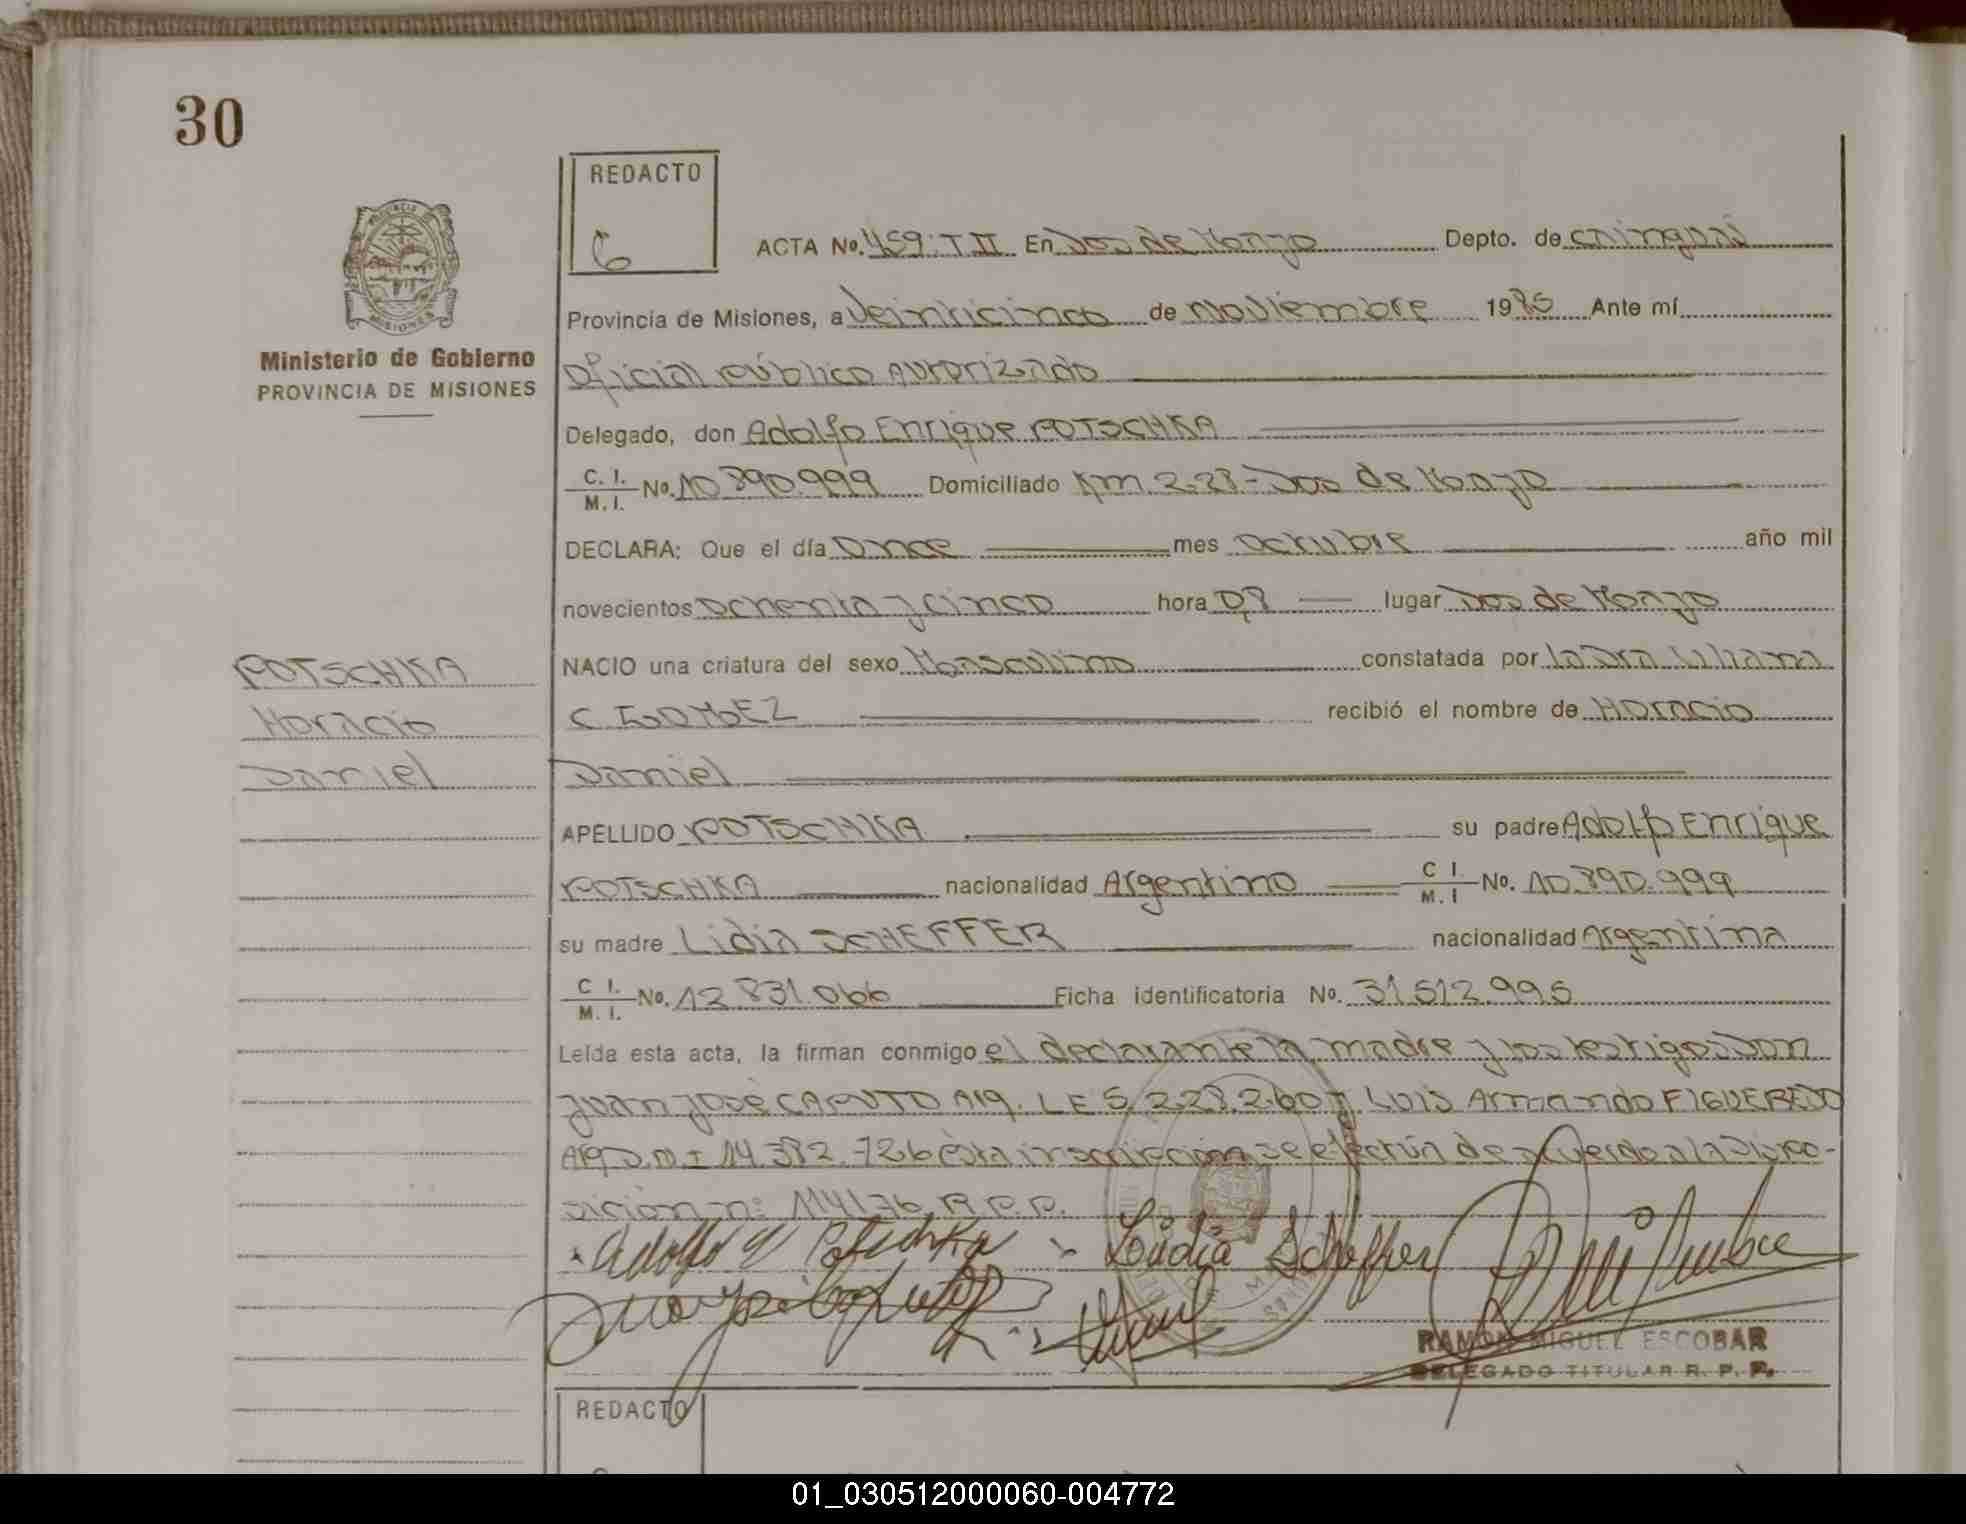 30
REDACTO
6
ACTA No. 459: T II En Dos de Mayo Depto. de cainguás
Provincia de Misiones, a Veinticinco de noviembre 1985 Ante mí
Oficial público Autorizado
Ministerio de Gobierno
PROVINCIA DE MISIONES
Delegado, don Adolfo Enrique POTSCHKA
C. I. M. I. No. 10.890.999 Domiciliado Km. 228- Dos de Mayo
DECLARA: Que el día Once mes octubre año mil
novecientos ochenta y cinco hora 08 lugar Dos de Mayo
NACIO una criatura del sexo Masculino constatada por la Dra Liliana
C. GOMEZ recibió el nombre de Horacio
Daniel
POTSCHKA
Horacio
Daniel
APELLIDO POTSCHKA su padre Adolfo Enrique
POTSCHKA nacionalidad Argentino C I. M. I No. 10.890.999
su madre Lidia SCHEFFER nacionalidad Argentina
C I. M. I. No. 12.831.066 Ficha identificatoria No. 31.512.995
Leída esta acta, la firman conmigo el declarante la madre y los testigos Don
Juan José CAPUTO Arg. L E 5.228.260 y Luis Armando FIGUEREDO
Arg D.N.I 14.382.726 Esta inscripción se efectúa de acuerdo a la Dispo-
sición nº 114/76 R.P.P.
Adolfo E Potschka Lidia Scheffer
RAMON MIGUEL ESCOBAR
DELEGADO TITULAR R. P. P.
REDACTO
01_030512000060-004772